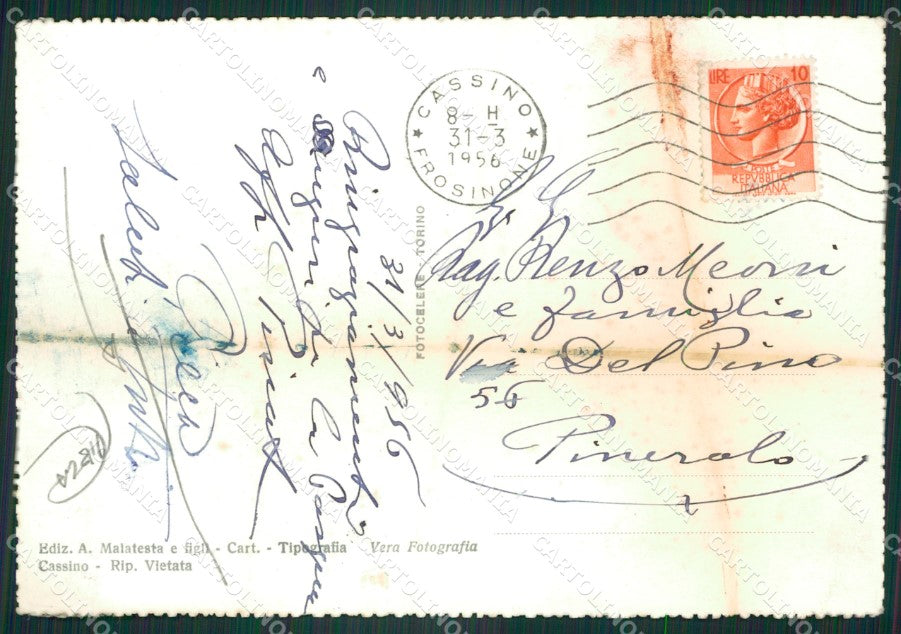 CASSINO
8- H
31-3
1956
FROSINONE
LIRE 10
POSTE
REPVBBLICA
ITALIANA
Rag. Renzo Meorri
e famiglia
Via Del Pino
56
Pinerolo
31/3/1956
Ringraziamenti
e auguri la
Aff
Saluti
FOTOCELERE - TORINO
Ediz. A. Malatesta e figli - Cart. - Tipografia Vera Fotografia
Cassino - Rip. Vietata
CARTOLINOMANIA